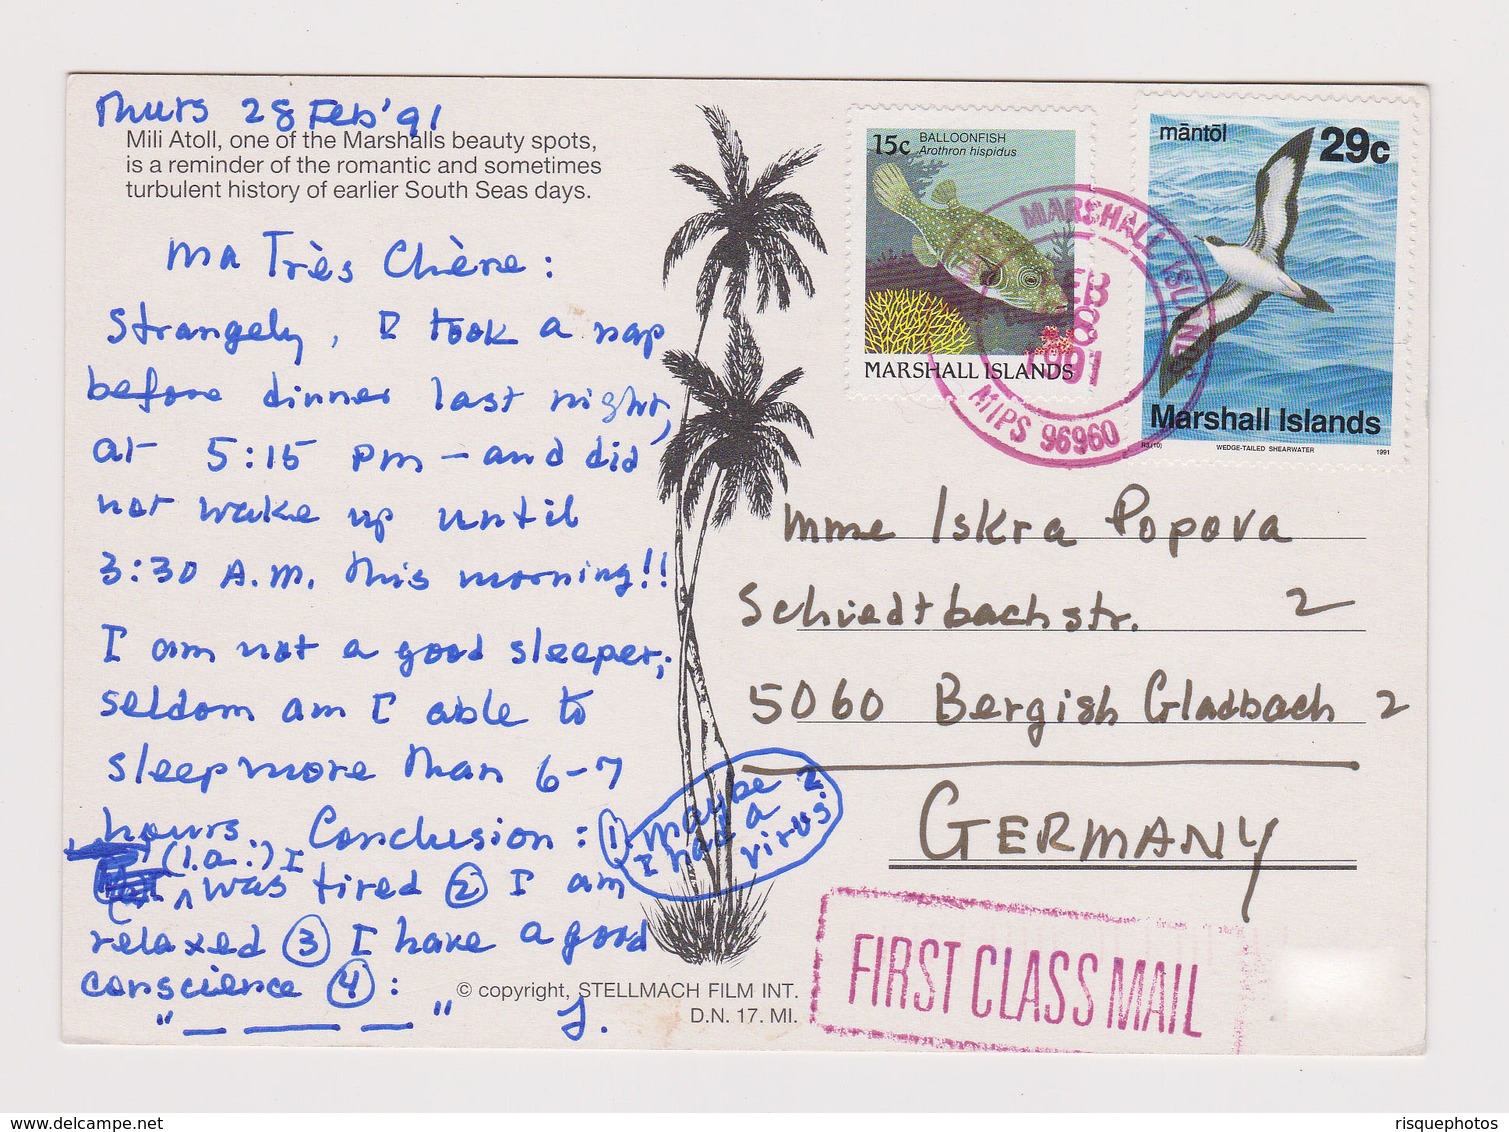 Thurs 28 Feb '91
Mili Atoll, one of the Marshalls beauty spots,
is a reminder of the romantic and sometimes
turbulent history of earlier South Seas days.
Ma Très Chère:
Strangely, I took a nap
before dinner last night,
at 5:15 pm – and did
not wake up until
3:30 A.M. this morning!!
I am not a good sleeper;
seldom am I able to
sleep more than 6–7
hours. Conclusion: ①
maybe
I had a
virus?
(1.a.:) I
was tired ② I am
relaxed ③ I have a good
conscience ④:
"_ _ _" J.
© copyright, STELLMACH FILM INT.
D.N. 17. MI.
15c BALLOONFISH
Arothron hispidus
MARSHALL ISLANDS
māntōl 29c
Marshall Islands
R3(10) WEDGE-TAILED SHEARWATER 1991
MARSHALL ISLANDS
FEB
28
1991
MIPS 96960
Mme Iskra Popova
Schiedtbachstr. 2
5060 Bergish Gladbach 2
GERMANY
FIRST CLASS MAIL
www.delcampe.net
risquephotos